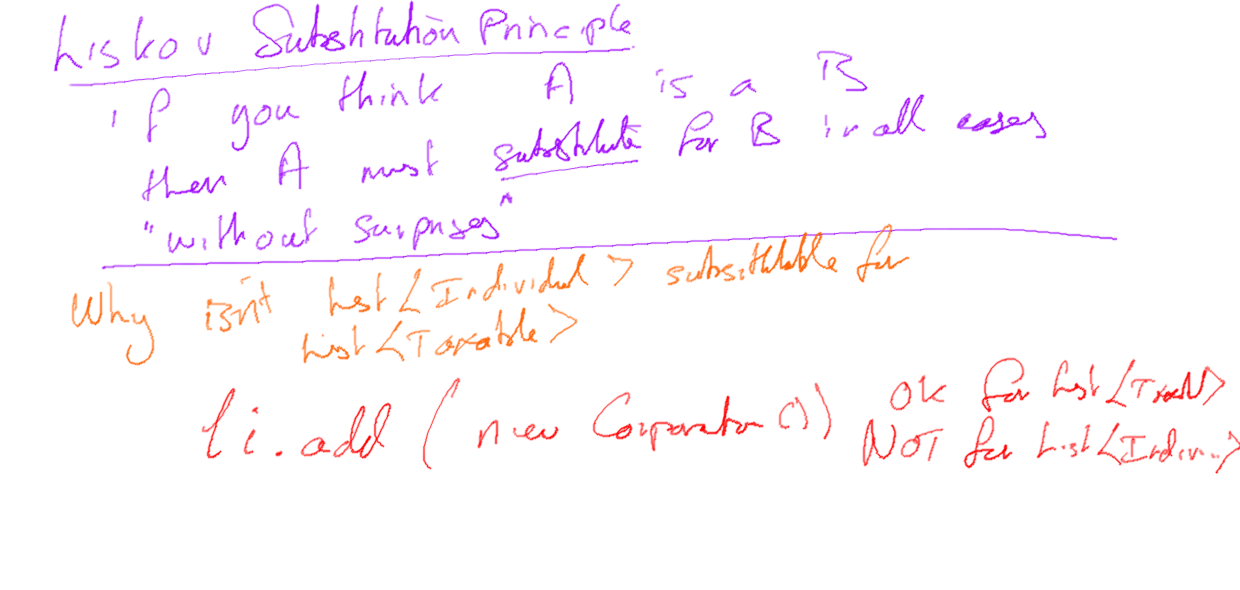 Liskov Substitution Principle
if you think A is a B
then A must substitute for B in all cases
"without surprises"
Why isn't List<Individual> substitutable for
List<Taxable>
li.add(new Corporation()) OK for List<Taxabl>
NOT for List<Indiv...>